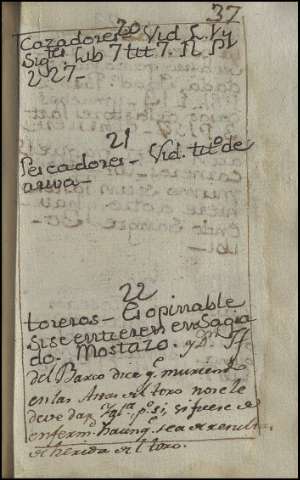 37
20
Cazadores - Vid. L. Vy
Sigtes Lib 7 tit 7. fl
2 y 27 -
21
Pescadores - Vid. titº de
arriva -
22
toreros - Es opinable
si se entierren en Sagra
do. Mostazo. y
del Barco dice q. muriend
en las Astas del toro no se le
deve dar si, si fuere de
enfermd. haunq. sea de resulta
de herida del toro.